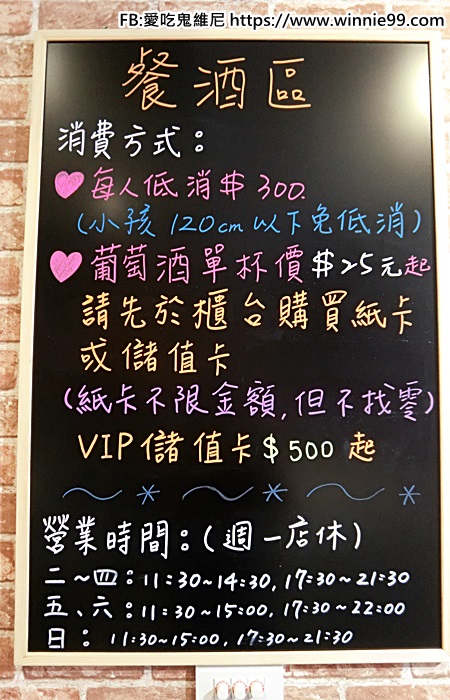 FB:愛吃鬼維尼 https://www.winnie99.com
餐酒區
消費方式：
每人低消$300.
(小孩120cm以下免低消)
葡萄酒單杯價$25元起
請先於櫃台購買紙卡
或儲值卡
(紙卡不限金額,但不找零)
VIP儲值卡$500起
營業時間：(週一店休)
二~四：11:30~14:30, 17:30~21:30
五、六：11:30~15:00, 17:30~22:00
日：11:30~15:00, 17:30~21:30